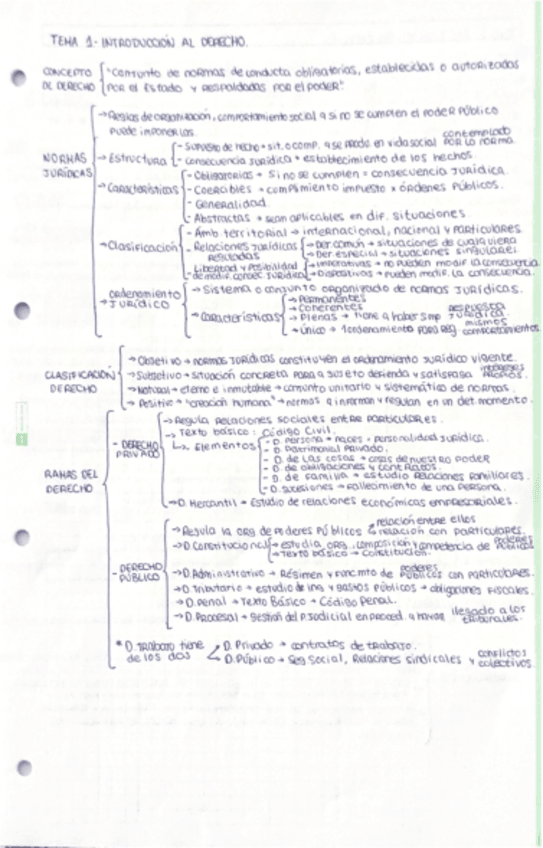 TEMA 1- INTRODUCCIÓN AL DERECHO.
CONCEPTO DE DERECHO "Conjunto de normas de conducta obligatorias, establecidas o autorizadas
por el Estado y respaldadas por el poder".
NORMAS JURÍDICAS
→ Reglas de organización, comportamiento social q si no se cumplen el poder público
puede imponerlas.
→ Estructura
- Supuesto de hecho → sit. o comp. q se prode en vida social contemplado por la norma.
- Consecuencia Jurídica → establecimiento de los hechos.
→ Características
- Obligatorias → si no se cumplen = consecuencia JURÍDICA.
- Coercibles → complimiento impuesto x órdenes públicos.
- Generalidad.
- Abstractas → sean aplicables en dif. situaciones.
→ Clasificación
- Amb. territorial → internacional, nacional y particulares.
- Relaciones Jurídicas
→ Der. común → situaciones de cualquiera
→ Der. especial → situaciones singulares.
- Libertad y posibilidad de modif. consec. Jurídica
→ Imperativas → no pueden modif. la consecuencia
→ Dispositivas → pueden modif. la consecuencia.
→ Ordenamiento JURÍDICO
→ Sistema o conjunto organizado de normas JURÍDICAS.
→ Características
→ Permanentes
→ Coherentes
→ Plenas → tiene q haber smp respuesta JURÍDICA.
→ Único → 1 ordenamiento para reg. mismos comportamientos
CLASIFICACIÓN DERECHO
→ Objetivo → normas JURÍDICAS constituyen el ordenamiento JURÍDICO vigente.
→ Subjetivo → situación concreta para q sujeto defienda y satisfaga intereses propios.
→ Natural → eterno e inmutable → conjunto unitario y sistemático de normas.
→ Positivo → "creación humana" → normas q informan y regulan en un det. momento.
RAMAS DEL DERECHO
- DERECHO PRIVADO
→ Regula relaciones sociales entre particulares.
→ Texto básico: Código Civil.
↳ Elementos
- D. Persona → naces = personalidad JURÍDICA.
- D. Patrimonial Privado.
- D. de las cosas → cosas de nuestro poder
- D. de obligaciones y contratos.
- D. de familia → estudio relaciones familiares.
- D. sucesiones → fallecimiento de una persona.
→ D. Mercantil → Estudio de relaciones económicas empresariales.
- DERECHO PÚBLICO
→ Regula la org de poderes públicos
relación entre ellos
relación con particulares.
→ D. Constitucional
→ estudia org., composición y competencia de poderes públicos
→ Texto básico → Constitución.
→ D. Administrativo → Régimen y funcmto de poderes públicos con particulares.
→ D. tributario → estudio de ing y gastos públicos → obligaciones fiscales.
→ D. penal → Texto Básico → Código Penal.
→ D. Procesal → gestión del p. judicial en proced. llegado a los tribunales.
* D. TRABAJO tiene de los dos
D. Privado → contratos de trabajo.
D. Público → Seg Social, Relaciones sindicales y conflictos colectivos.